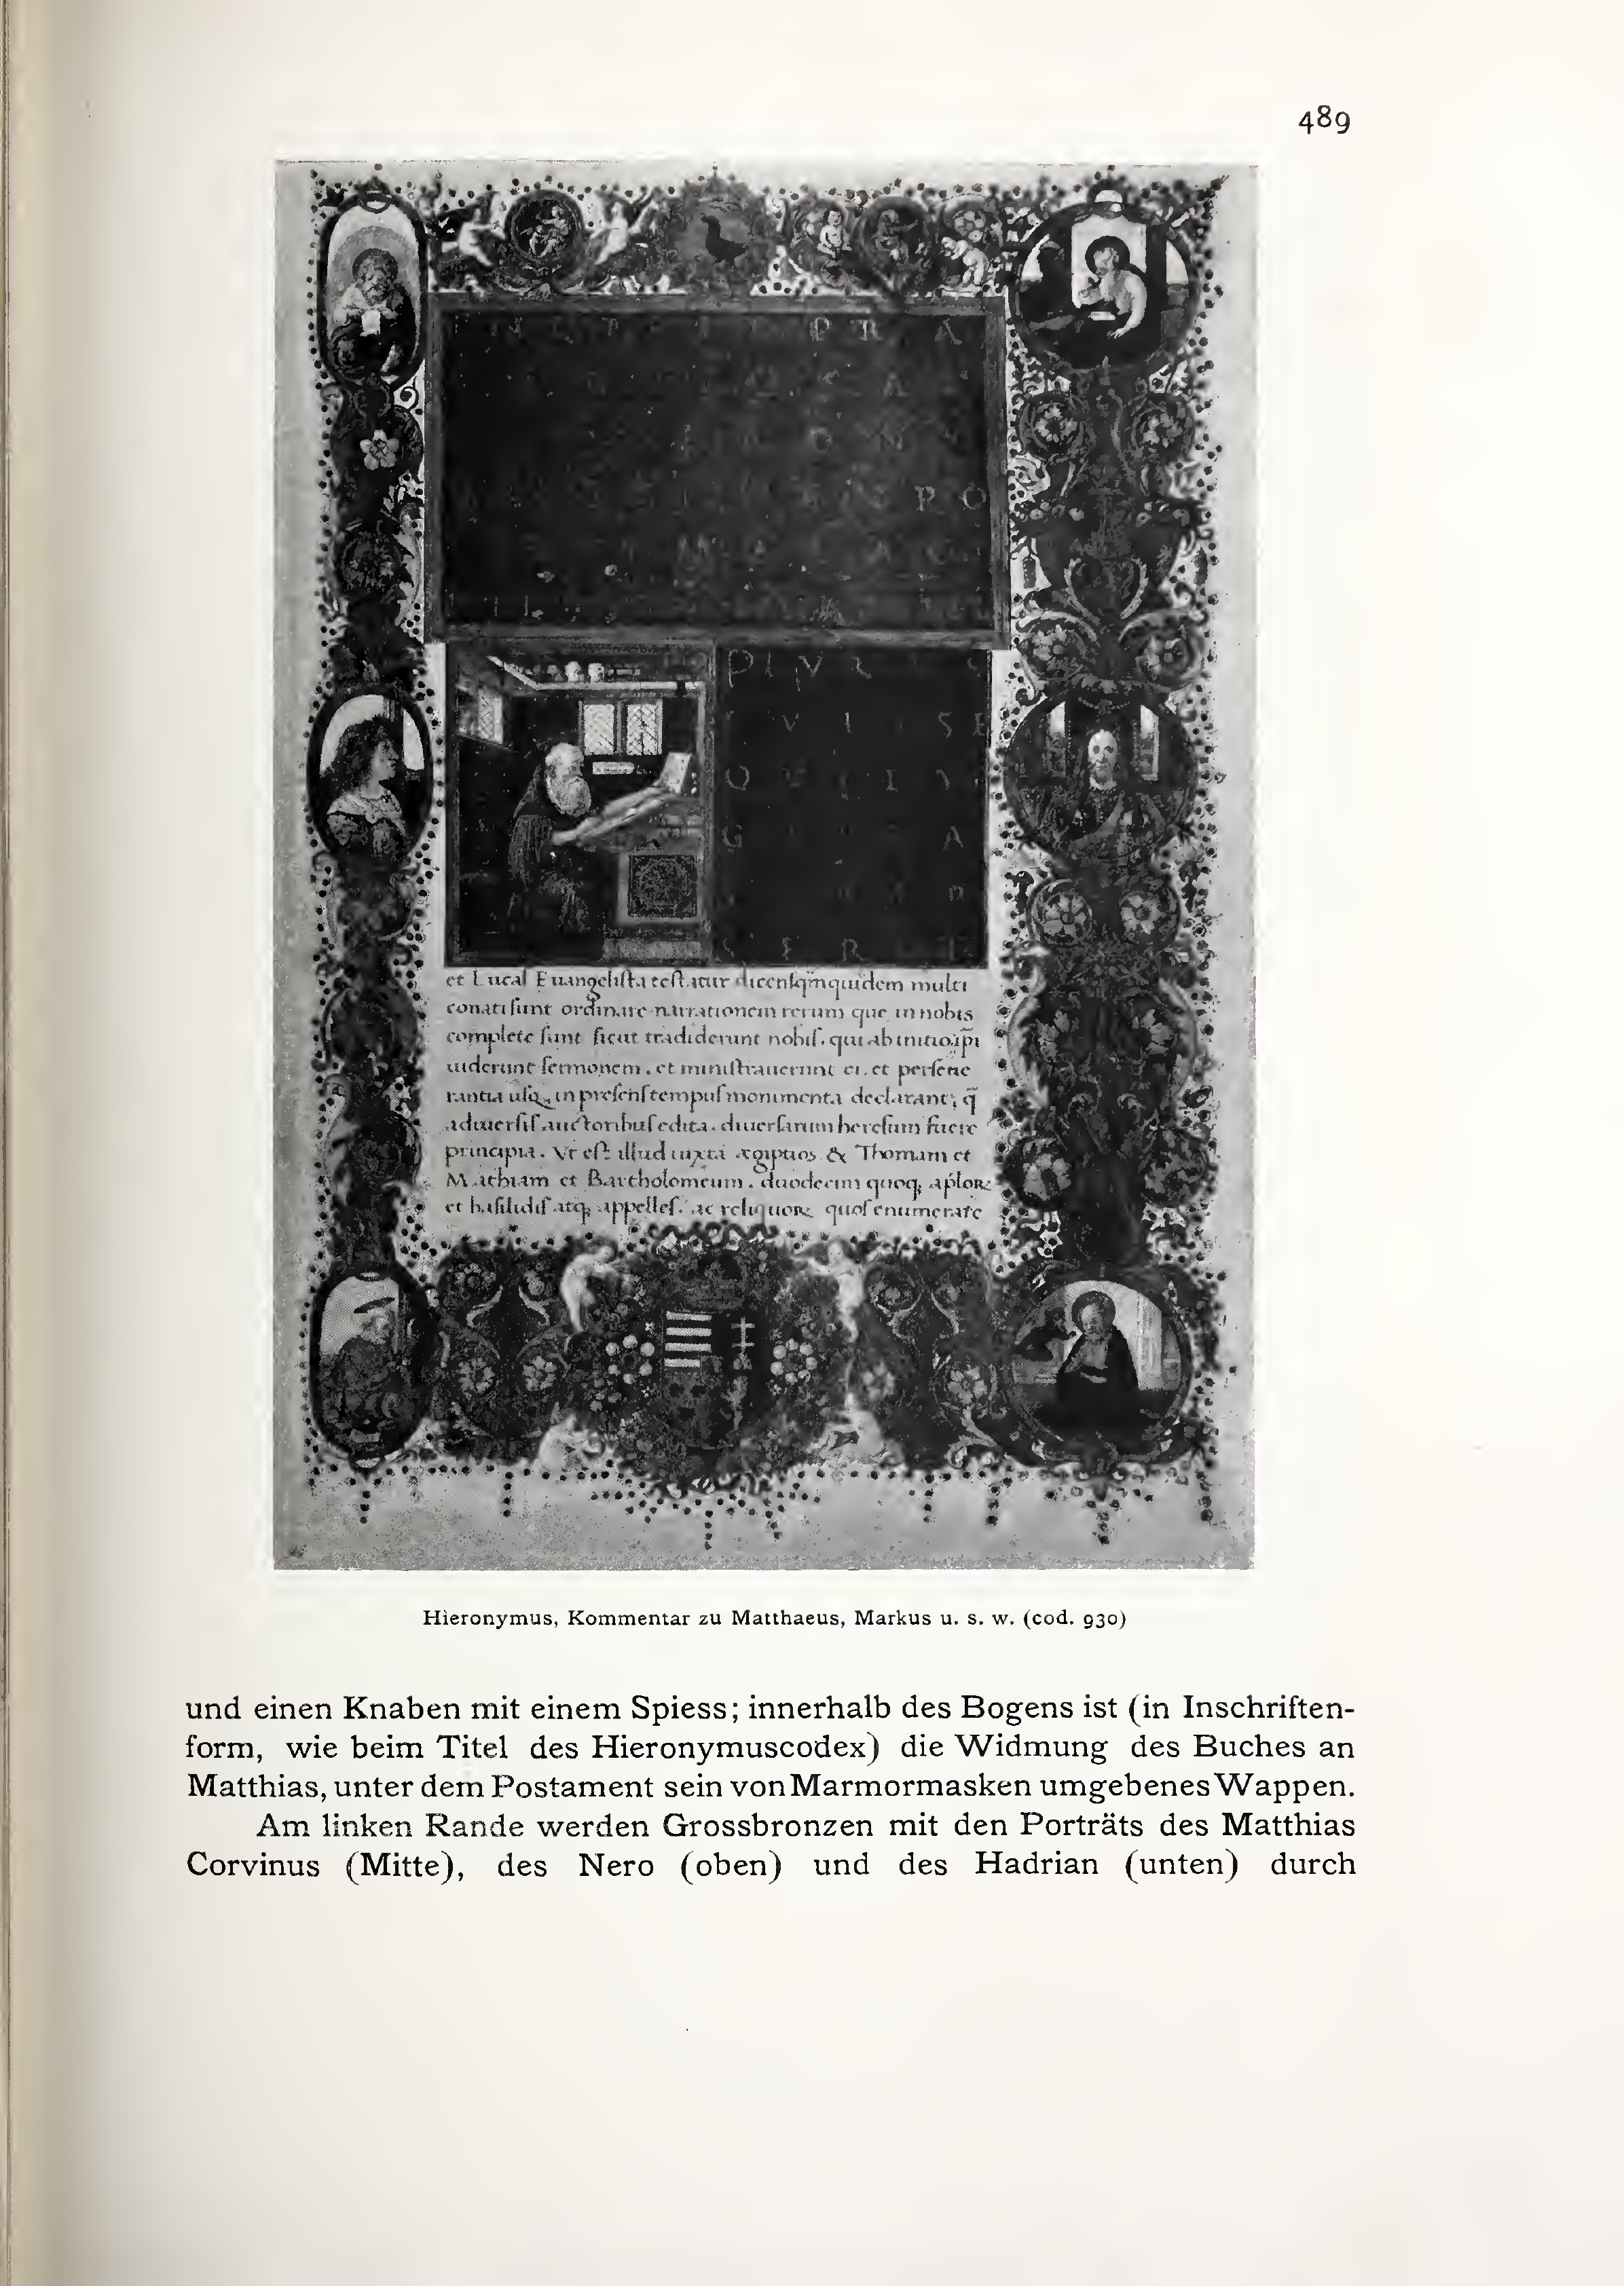 489
et Lucas Euangelista testatur dicens qm̄ quidem multi
conati sunt ordinare narrationem rerum que in nobis
complete sunt sicut tradiderunt nobis. qui ab initio ipi
uiderunt sermonem. et ministrauerunt ei. et perseue
rantia usq; in presens tempus monumenta declarant; q̄
aduersis auctoribus edita. diuersarum heresum fuere
principia. Vt est illud iuxta ægiptios & Thomam et
Mathiam et Bartholomeum. duodecim quoq; aploꝝ
et basilidis atq; appelles. ac reliquoꝝ quos enumerare
Hieronymus, Kommentar zu Matthaeus, Markus u. s. w. (cod. 930)
und einen Knaben mit einem Spiess; innerhalb des Bogens ist (in Inschriften-
form, wie beim Titel des Hieronymuscodex) die Widmung des Buches an
Matthias, unter dem Postament sein von Marmormasken umgebenes Wappen.
Am linken Rande werden Grossbronzen mit den Porträts des Matthias
Corvinus (Mitte), des Nero (oben) und des Hadrian (unten) durch